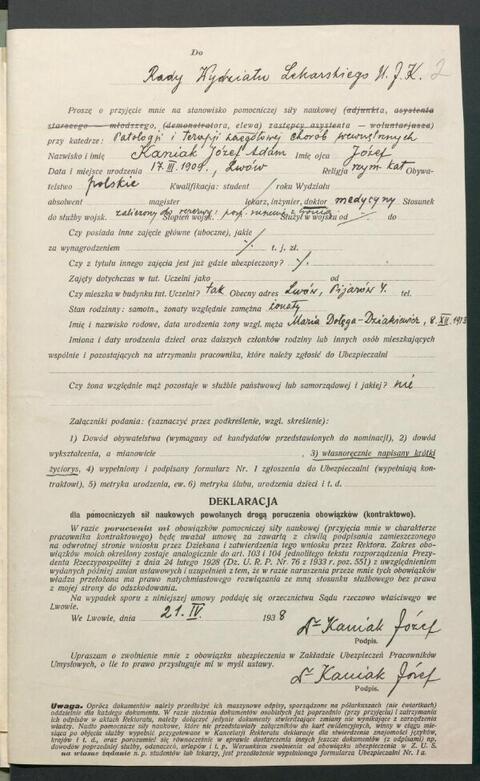 Do
Rady Wydziału Lekarskiego U. J. K. 2
Proszę o przyjęcie mnie na stanowisko pomocniczej siły naukowej (adjunkta, asystenta
starszego — młodszego, (demonstratora, elewa) zastępcy asystenta — woluntarjusza)
przy katedrze: Patologji i terapji szczegółowej chorób wewnętrznych
Nazwisko i imię Kaniak Józef Adam Imię ojca Józef
Data i miejsce urodzenia 17.III.1909, Lwów Religja rzym kat Obywa-
telstwo polskie Kwalifikacja: student / roku Wydziału
absolwent magister lekarz, inżynier, doktor medycyny Stosunek
do służby wojsk. zaliczony do rezerwy: Stopień wojsk. Służył w wojsku od do
Czy posiada inne zajęcie główne (uboczne), jakie
za wynagrodzeniem t. j. zł.
Czy z tytułu innego zajęcia jest już gdzie ubezpieczony?
Zajęty dotychczas w tut. Uczelni jako od
Czy mieszka w budynku tut. Uczelni? tak Obecny adres Lwów, Pijarów 4. tel.
Stan rodzinny: samotn., żonaty względnie zamężna żonaty
Imię i nazwisko rodowe, data urodzenia żony wzgl. męża Maria Dołęga-Dziakiewicz, 8.XII.1913
Imiona i daty urodzenia dzieci oraz dalszych członków rodziny lub innych osób mieszkających
wspólnie i pozostających na utrzymaniu pracownika, które należy zgłosić do Ubezpieczalni
Czy żona względnie mąż pozostaje w służbie państwowej lub samorządowej i jakiej? nie
Załączniki podania: (zaznaczyć przez podkreślenie, wzgl. skreślenie):
1) Dowód obywatelstwa (wymagany od kandydatów przedstawionych do nominacji), 2) dowód
wykształcenia, a mianowicie , 3) własnoręcznie napisany krótki
życiorys, 4) wypełniony i podpisany formularz Nr. 1 zgłoszenia do Ubezpieczalni (wypełniają kon-
traktowi), 5) metryka urodzenia, ew. 6) metryka ślubu, urodzenia dzieci i t. d.
DEKLARACJA
dla pomocniczych sił naukowych powołanych drogą poruczenia obowiązków (kontraktowo).
W razie poruczenia mi obowiązków pomocniczej siły naukowej (przyjęcia mnie w charakterze
pracownika kontraktowego) będę uważał umowę za zawartą z chwilą podpisania zamieszczonego
na odwrotnej stronie wniosku przez Dziekana i zatwierdzenia tego wniosku przez Rektora. Zakres obo-
wiązków moich określony zostaje analogicznie do art. 103 i 104 jednolitego tekstu rozporządzenia Prezy-
denta Rzeczypospolitej z dnia 24 lutego 1928 (Dz. U. R. P. Nr. 76 z 1933 r. poz. 551) z uwzględnieniem
wydanych później zmian ustawowych i uzupełnień z tem, że w razie naruszenia przeze mnie tych obowiązków
władza przełożona ma prawo natychmiastowego rozwiązania ze mną stosunku służbowego bez prawa
z mojej strony do odszkodowania.
Na wypadek sporu z niniejszej umowy poddaję się orzecznictwu Sądu rzeczowo właściwego we
Lwowie.
We Lwowie, dnia 21.IV. 1938
Dr Kaniak Józef
Podpis.
Upraszam o zwolnienie mnie z obowiązku ubezpieczenia w Zakładzie Ubezpieczeń Pracowników
Umysłowych, o ile to prawo przysługuje mi w myśl ustawy.
Dr Kaniak Józef
Podpis.
Uwaga. Oprócz dokumentów należy przedłożyć ich maszynowe odpisy, sporządzone na półarkuszach (nie ćwiartkach)
oddzielnie dla każdego dokumentu. W razie złożenia dokumentów osobistych już poprzednio (przy przyjęciu) i zatrzymania
ich odpisów w aktach Rektoratu, należy dołączyć jedynie dokumenty stwierdzające zmiany nie wynikające z zarządzeń
władzy. Nadto pomocnicze siły naukowe, które nie przedstawiały dotychczas do kart ewidencyjnych, winny w ciągu mie-
siąca po objęciu służby wypełnić przygotowane w Kancelarji Rektoratu deklaracje dla stwierdzenia znajomości języków,
krajów i t. d., oraz porozumieć się równocześnie w sprawie dostarczenia innych jeszcze dokumentów (z odpisami) np.
dowodów poprzedniej służby, odznaczeń, urlopów i t. p. Warunkiem zwolnienia od obowiązku ubezpieczenia w Z. U. S.
na własne żądanie n. p. studentów lub lekarzy, jest przedłożenie wypełnionego formularza Ubezpieczalni Nr. 1 a.